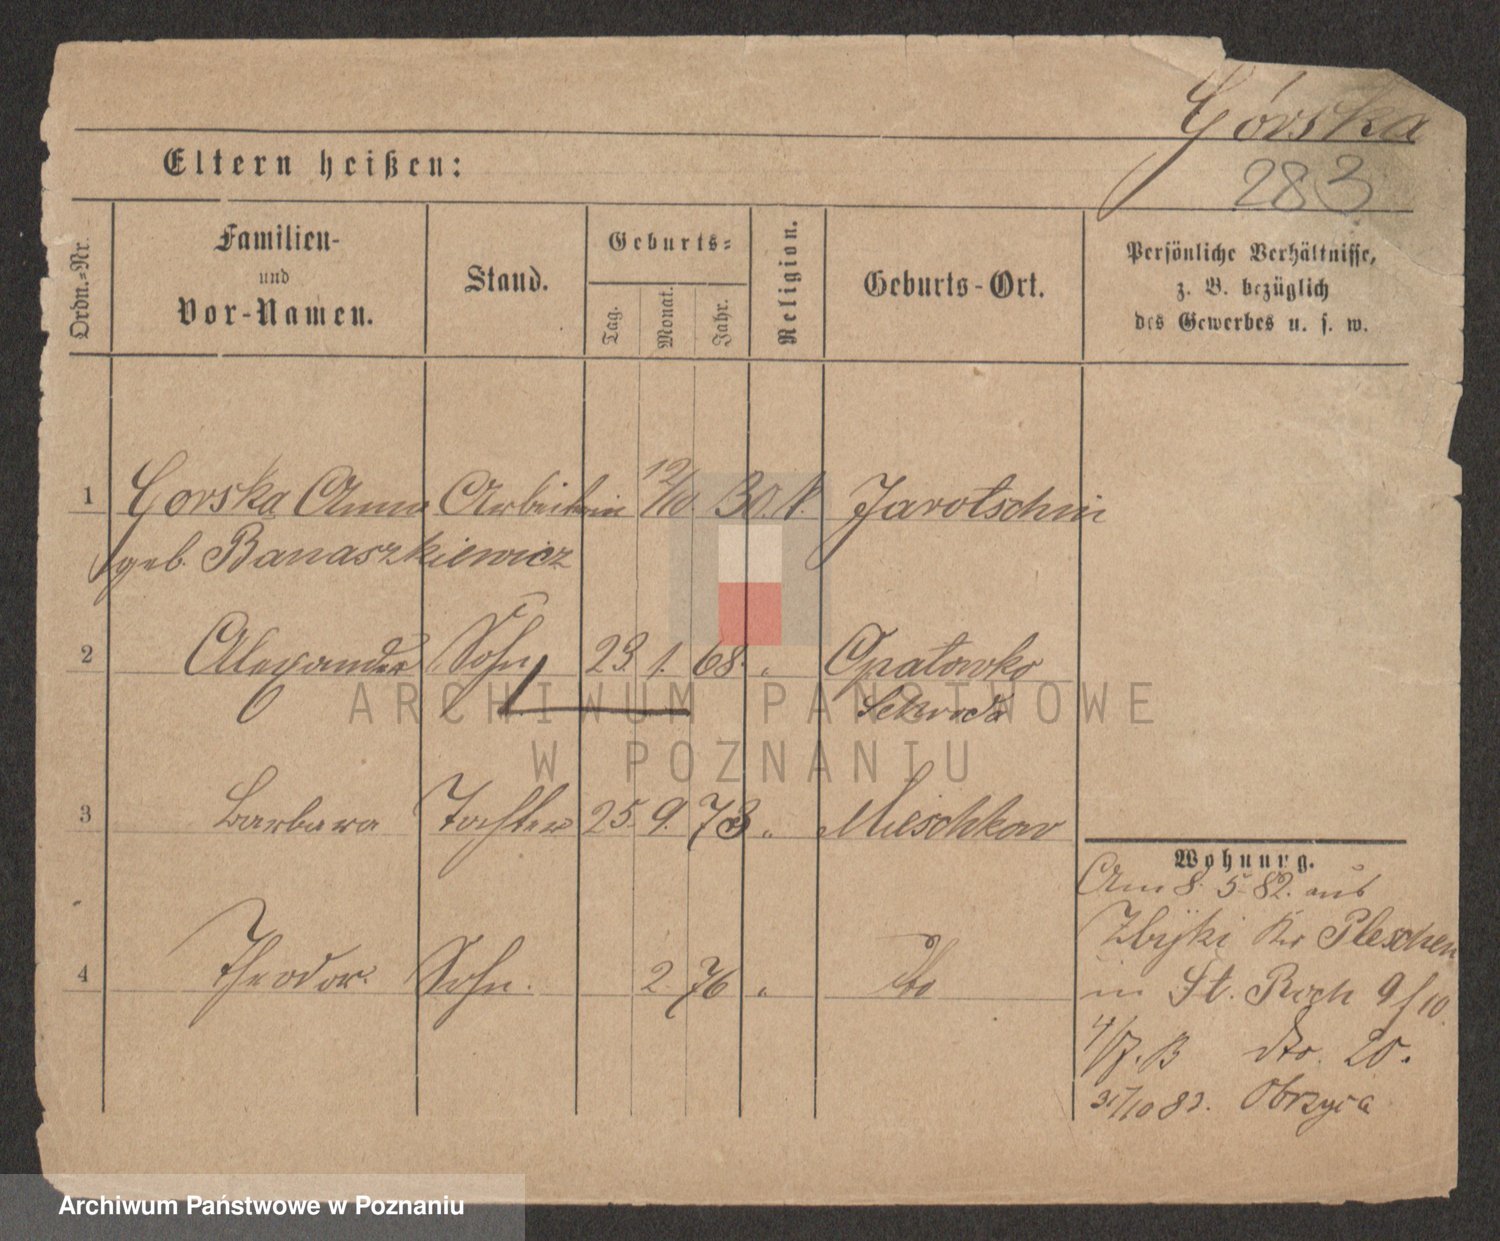 Górska
283
Eltern heißen:
Ordn.-Nr.
Familien-
und
Vor-Namen.
Stand.
Geburts-
Tag.
Monat.
Jahr.
Religion.
Geburts-Ort.
Persönliche Verhältnisse,
z. B. bezüglich
des Gewerbes u. s. w.
1 Gorska Anna Arbeiterin 12/10. 30 k. Jarotschin
geb. Banaszkiewicz
2 Alexander Sohn 23. 1. 68. " Opatowko
Schroda
3 Barbara Tochter 25. 9. 73 " Mieschkow
4 Theodor. Sohn. 2. 76 " dto
Wohnung.
Am 8. 5. 82. aus
Zbijki Kr Pleschen
in St. Roch 9/10.
4/7. B dto. 20.
31/10 82. Obrzyca
ARCHIWUM PAŃSTWOWE
W POZNANIU
Archiwum Państwowe w Poznaniu